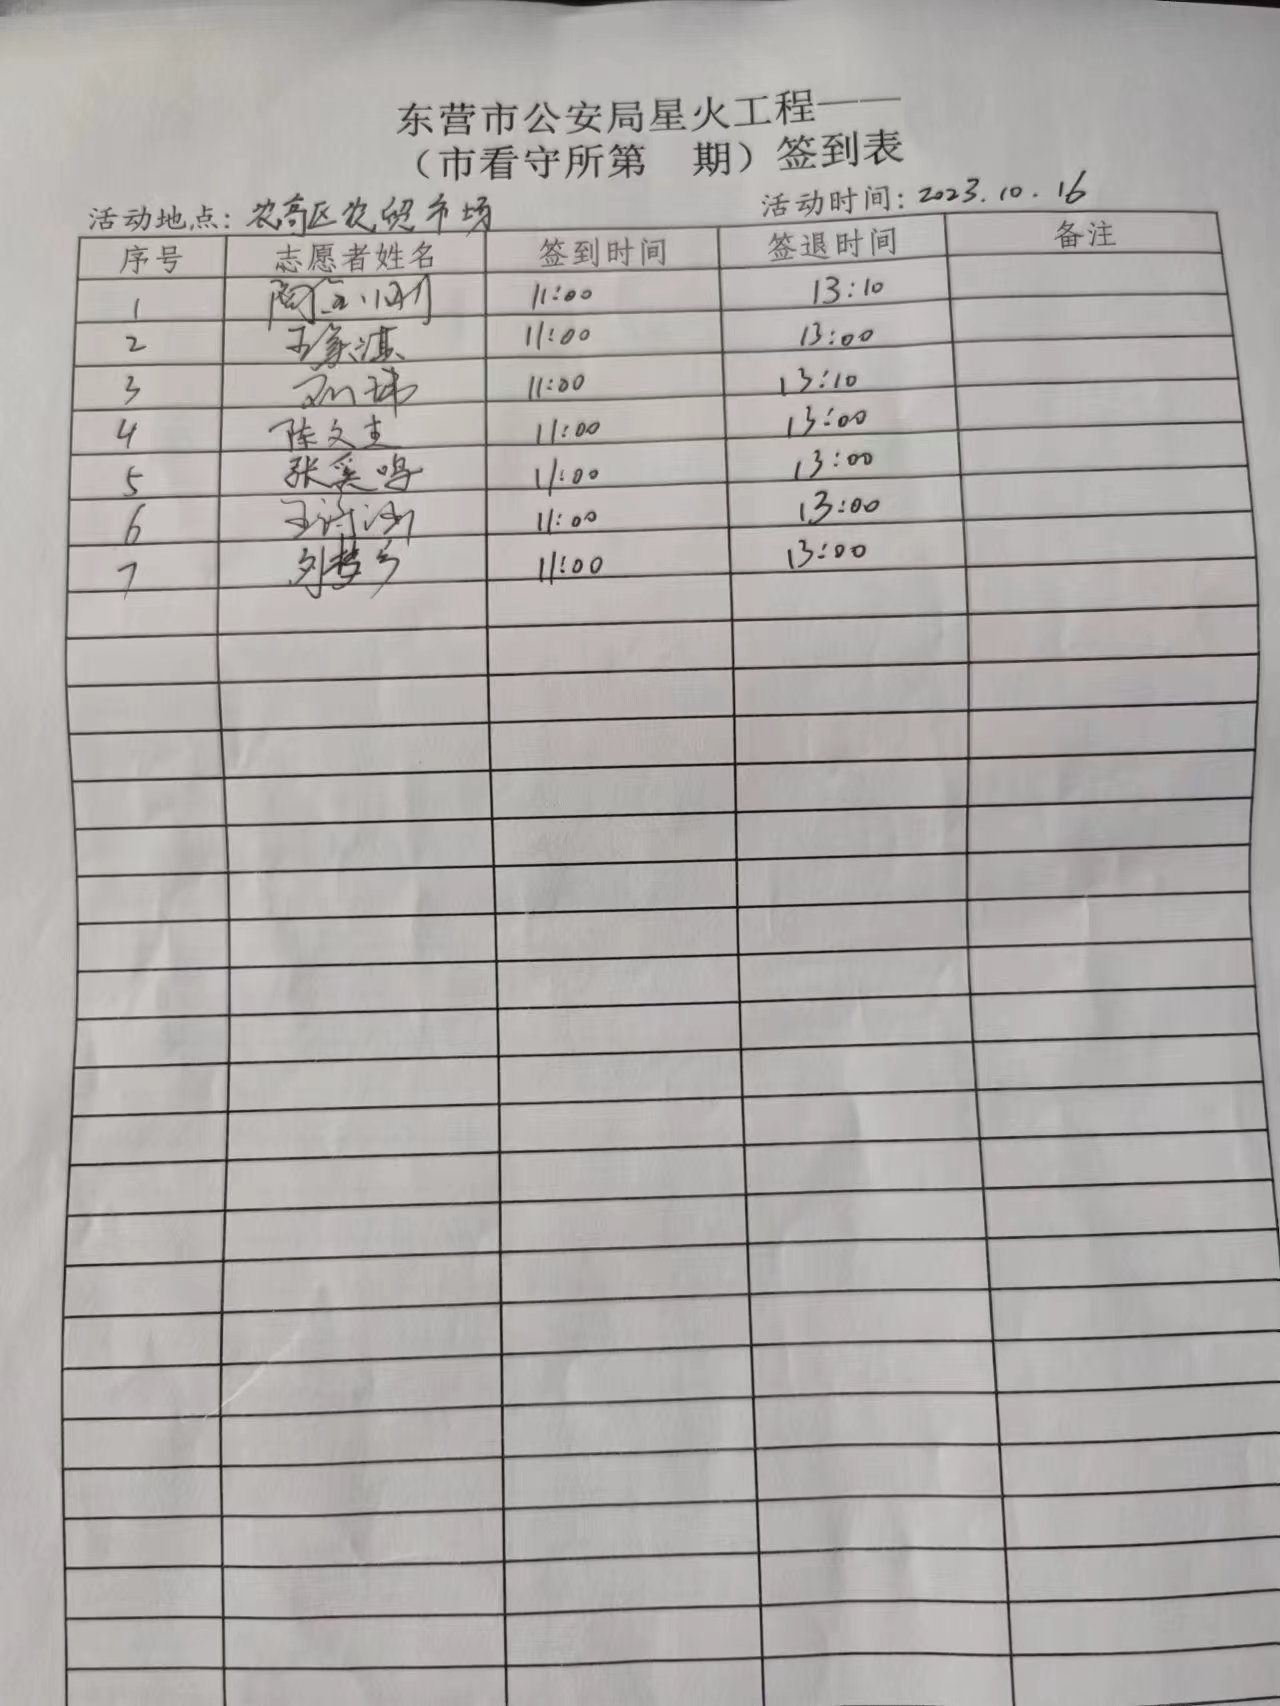 东营市公安局星火工程——
（市看守所第 期）签到表
活动地点：农高区农贸市场 活动时间：2023.10.16
序号 志愿者姓名 签到时间 签退时间 备注
1 11:00 13:10
2 王象滇 11:00 13:00
3 刘玮 11:00 13:10
4 陈文圭 11:00 13:00
5 张奚鸣 11:00 13:00
6 王诗涵 11:00 13:00
7 刘梦乡 11:00 13:00